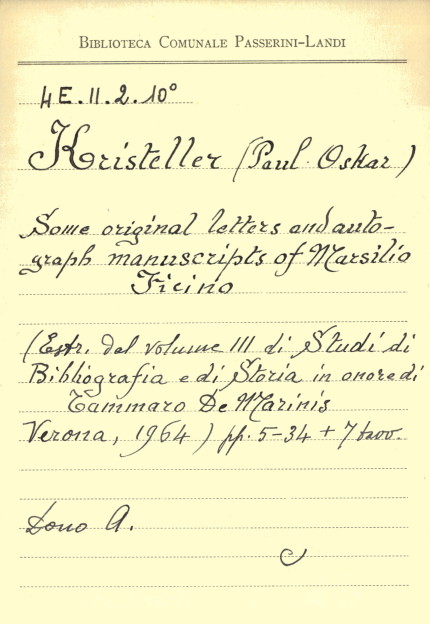 BIBLIOTECA COMUNALE PASSERINI-LANDI
4E.II.2.10°
Kristeller (Paul Oskar)
Some original letters and auto-
graph manuscripts of Marsilio
Ficino
(Estr. dal volume III di Studi di
Bibliografia e di Storia in onore di
Tammaro De Marinis
Verona, 1964) pp. 5-34 + 7 tavv.
Dono A.